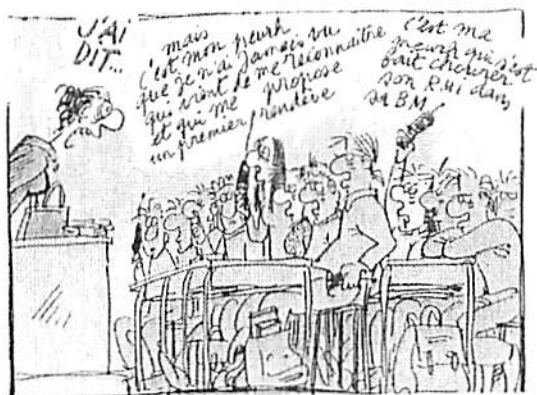 J'AI
DIT...
mais
C'est mon peurh
que je n'ai jamais vu
qui vient de me reconnaître
et qui me propose
un premier rendève
C'est ma
meurh qui s'est
fait chourer
son R.Mi dans
sa BM